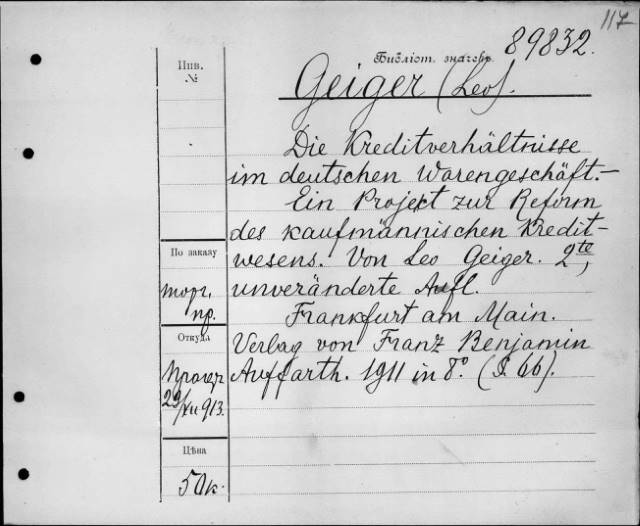 117
Библіот. значекъ 89832.
Инв.
№
Geiger (Leo).
Die Kreditverhältnisse
im deutschen Warengeschäft.—
Ein Projekt zur Reform
des kaufmännischen Kredit-
wesens. Von Leo Geiger. 2te,
unveränderte Aufl.
Frankfurt am Main.
Verlag von Franz Benjamin
Auffarth. 1911 in 8°. (S. 66).
По заказу
торг.
пр.
Откуда
29/XII 913.
Цѣна
50к.